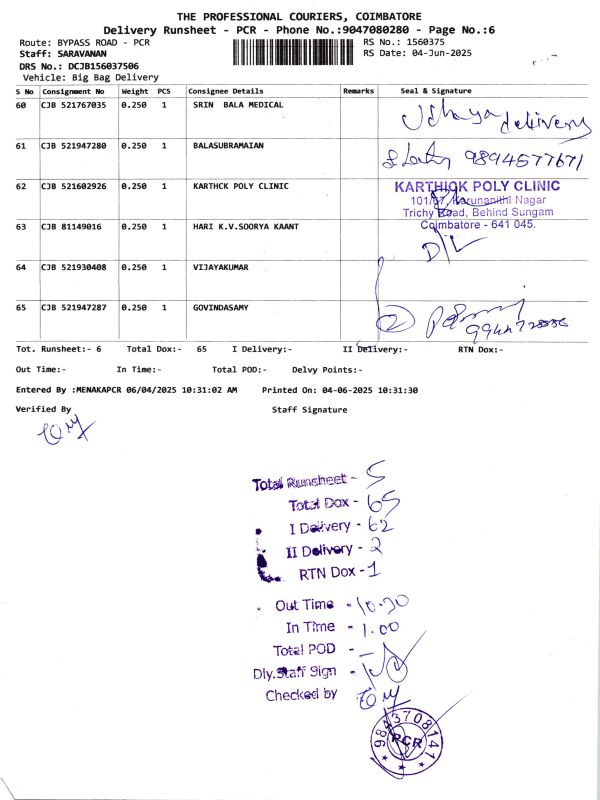 THE PROFESSIONAL COURIERS, COIMBATORE
Delivery Runsheet - PCR - Phone No.:9047080280 - Page No.:6
Route: BYPASS ROAD - PCR RS No.: 1560375
Staff: SARAVANAN RS Date: 04-Jun-2025
DRS No.: DCJB156037506
Vehicle: Big Bag Delivery
S No Consignment No Weight PCS Consignee Details Remarks Seal & Signature
60 CJB 521767035 0.250 1 SRIN BALA MEDICAL delivery
61 CJB 521947280 0.250 1 BALASUBRAMAIAN 9894577671
62 CJB 521602926 0.250 1 KARTHCK POLY CLINIC
KARTHICK POLY CLINIC
Karunanithi Nagar
Trichy Road, Behind Sungam
Coimbatore - 641 045.
63 CJB 81149016 0.250 1 HARI K.V.SOORYA KAANT D/L
64 CJB 521930408 0.250 1 VIJAYAKUMAR
65 CJB 521947287 0.250 1 GOVINDASAMY 2
Tot. Runsheet:- 6 Total Dox:- 65 I Delivery:- II Delivery:- RTN Dox:-
Out Time:- In Time:- Total POD:- Delvy Points:-
Entered By :MENAKAPCR 06/04/2025 10:31:02 AM Printed On: 04-06-2025 10:31:30
Verified By Staff Signature
Total Runsheet - 5
Total Dox - 65
I Delivery - 62
II Delivery - 2
RTN Dox - 1
Out Time - 10.30
In Time - 1.00
Total POD -
Dly.Staff Sign -
Checked by
9843708141
PCR